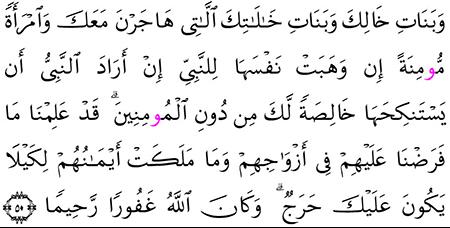 وَبَنَاتِ خَالِكَ وَبَنَاتِ خَٰلَٰتِكَ ٱلَّٰتِى هَاجَرْنَ مَعَكَ وَٱمْرَأَةً
مُّومِنَةً إِن وَهَبَتْ نَفْسَهَا لِلنَّبِىِّ إِنْ أَرَادَ ٱلنَّبِىُّ أَن
يَسْتَنكِحَهَا خَالِصَةً لَّكَ مِن دُونِ ٱلْمُومِنِينَ ۗ قَدْ عَلِمْنَا مَا
فَرَضْنَا عَلَيْهِمْ فِىٓ أَزْوَٰجِهِمْ وَمَا مَلَكَتْ أَيْمَٰنُهُمْ لِكَيْلَا
يَكُونَ عَلَيْكَ حَرَجٌ ۗ وَكَانَ ٱللَّهُ غَفُورًا رَّحِيمًا ٥٠